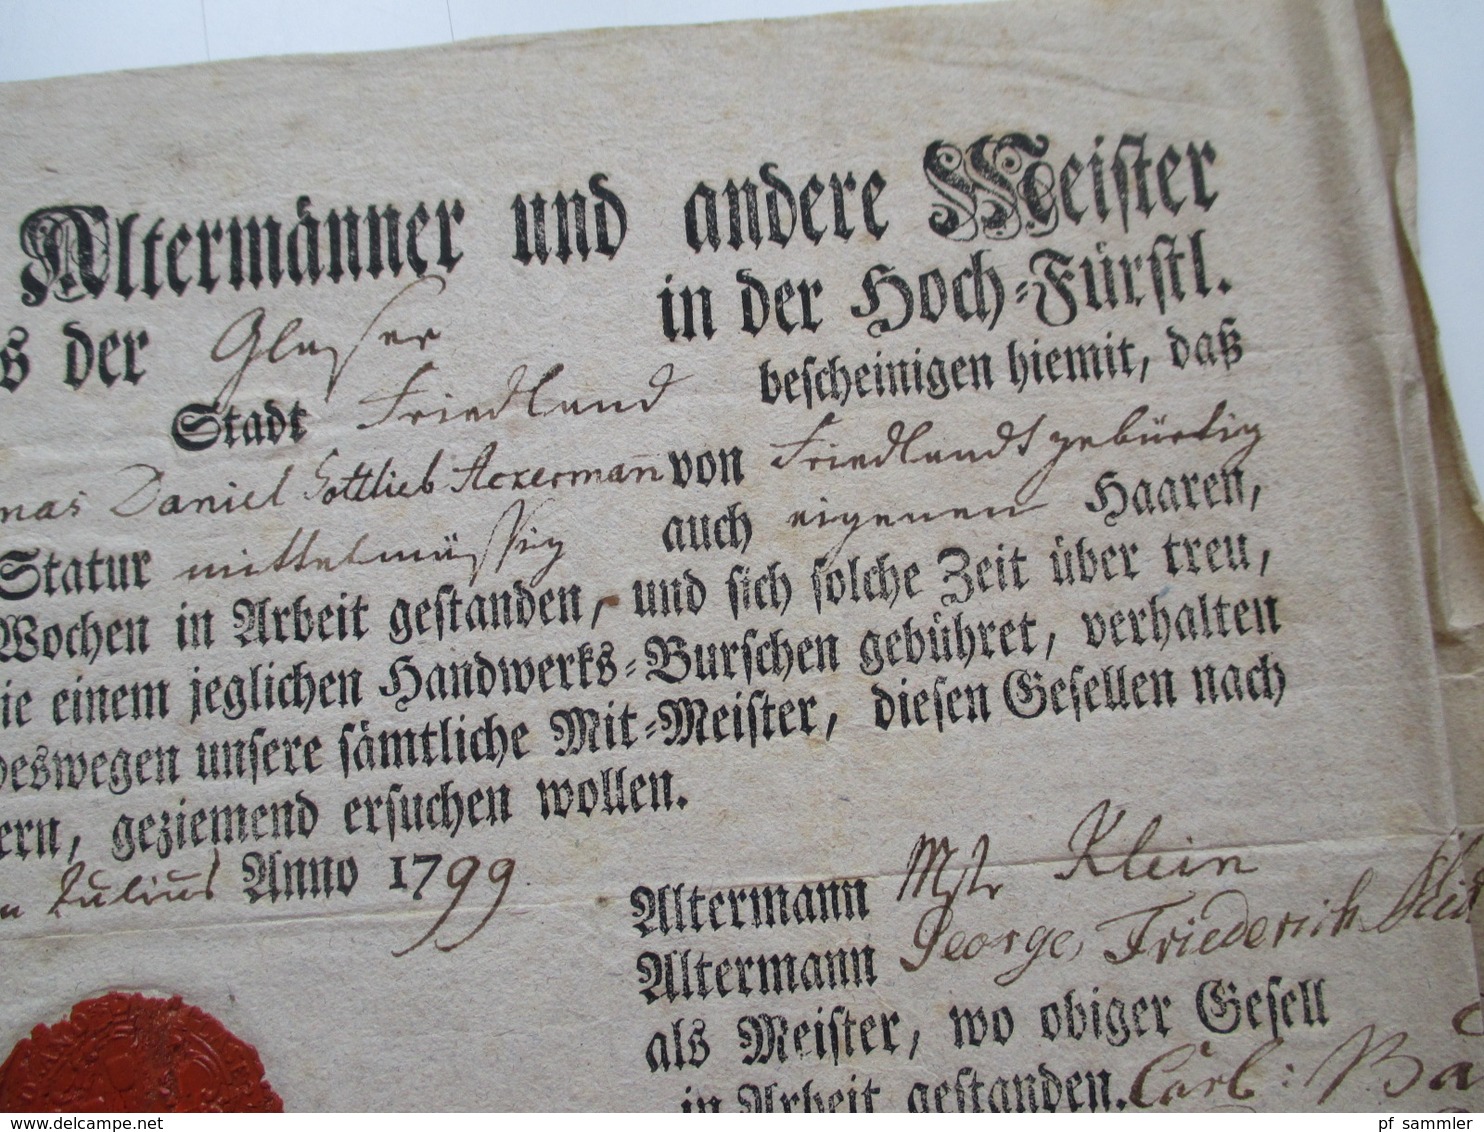 Altermänner und andere Meister
s der Glaser in der Hoch-Fürstl.
Stadt Friedland bescheinigen hiemit, daß
mas Daniel Gottlieb Ackermann von Friedlandt gebürtig
Statur mittelmäßig auch eigenen Haaren,
Wochen in Arbeit gestanden, und sich solche Zeit über treu,
ie einem jeglichen Handwerks-Burschen gebühret, verhalten
deswegen unsere sämtliche Mit-Meister, diesen Gesellen nach
ern, geziemend ersuchen wollen.
Julius Anno 1799.
Altermann Mstr Klein
Altermann George Friederich
als Meister, wo obiger Gesell
in Arbeit gestanden. Carl: Ba
delcampe.net
pf_sammler